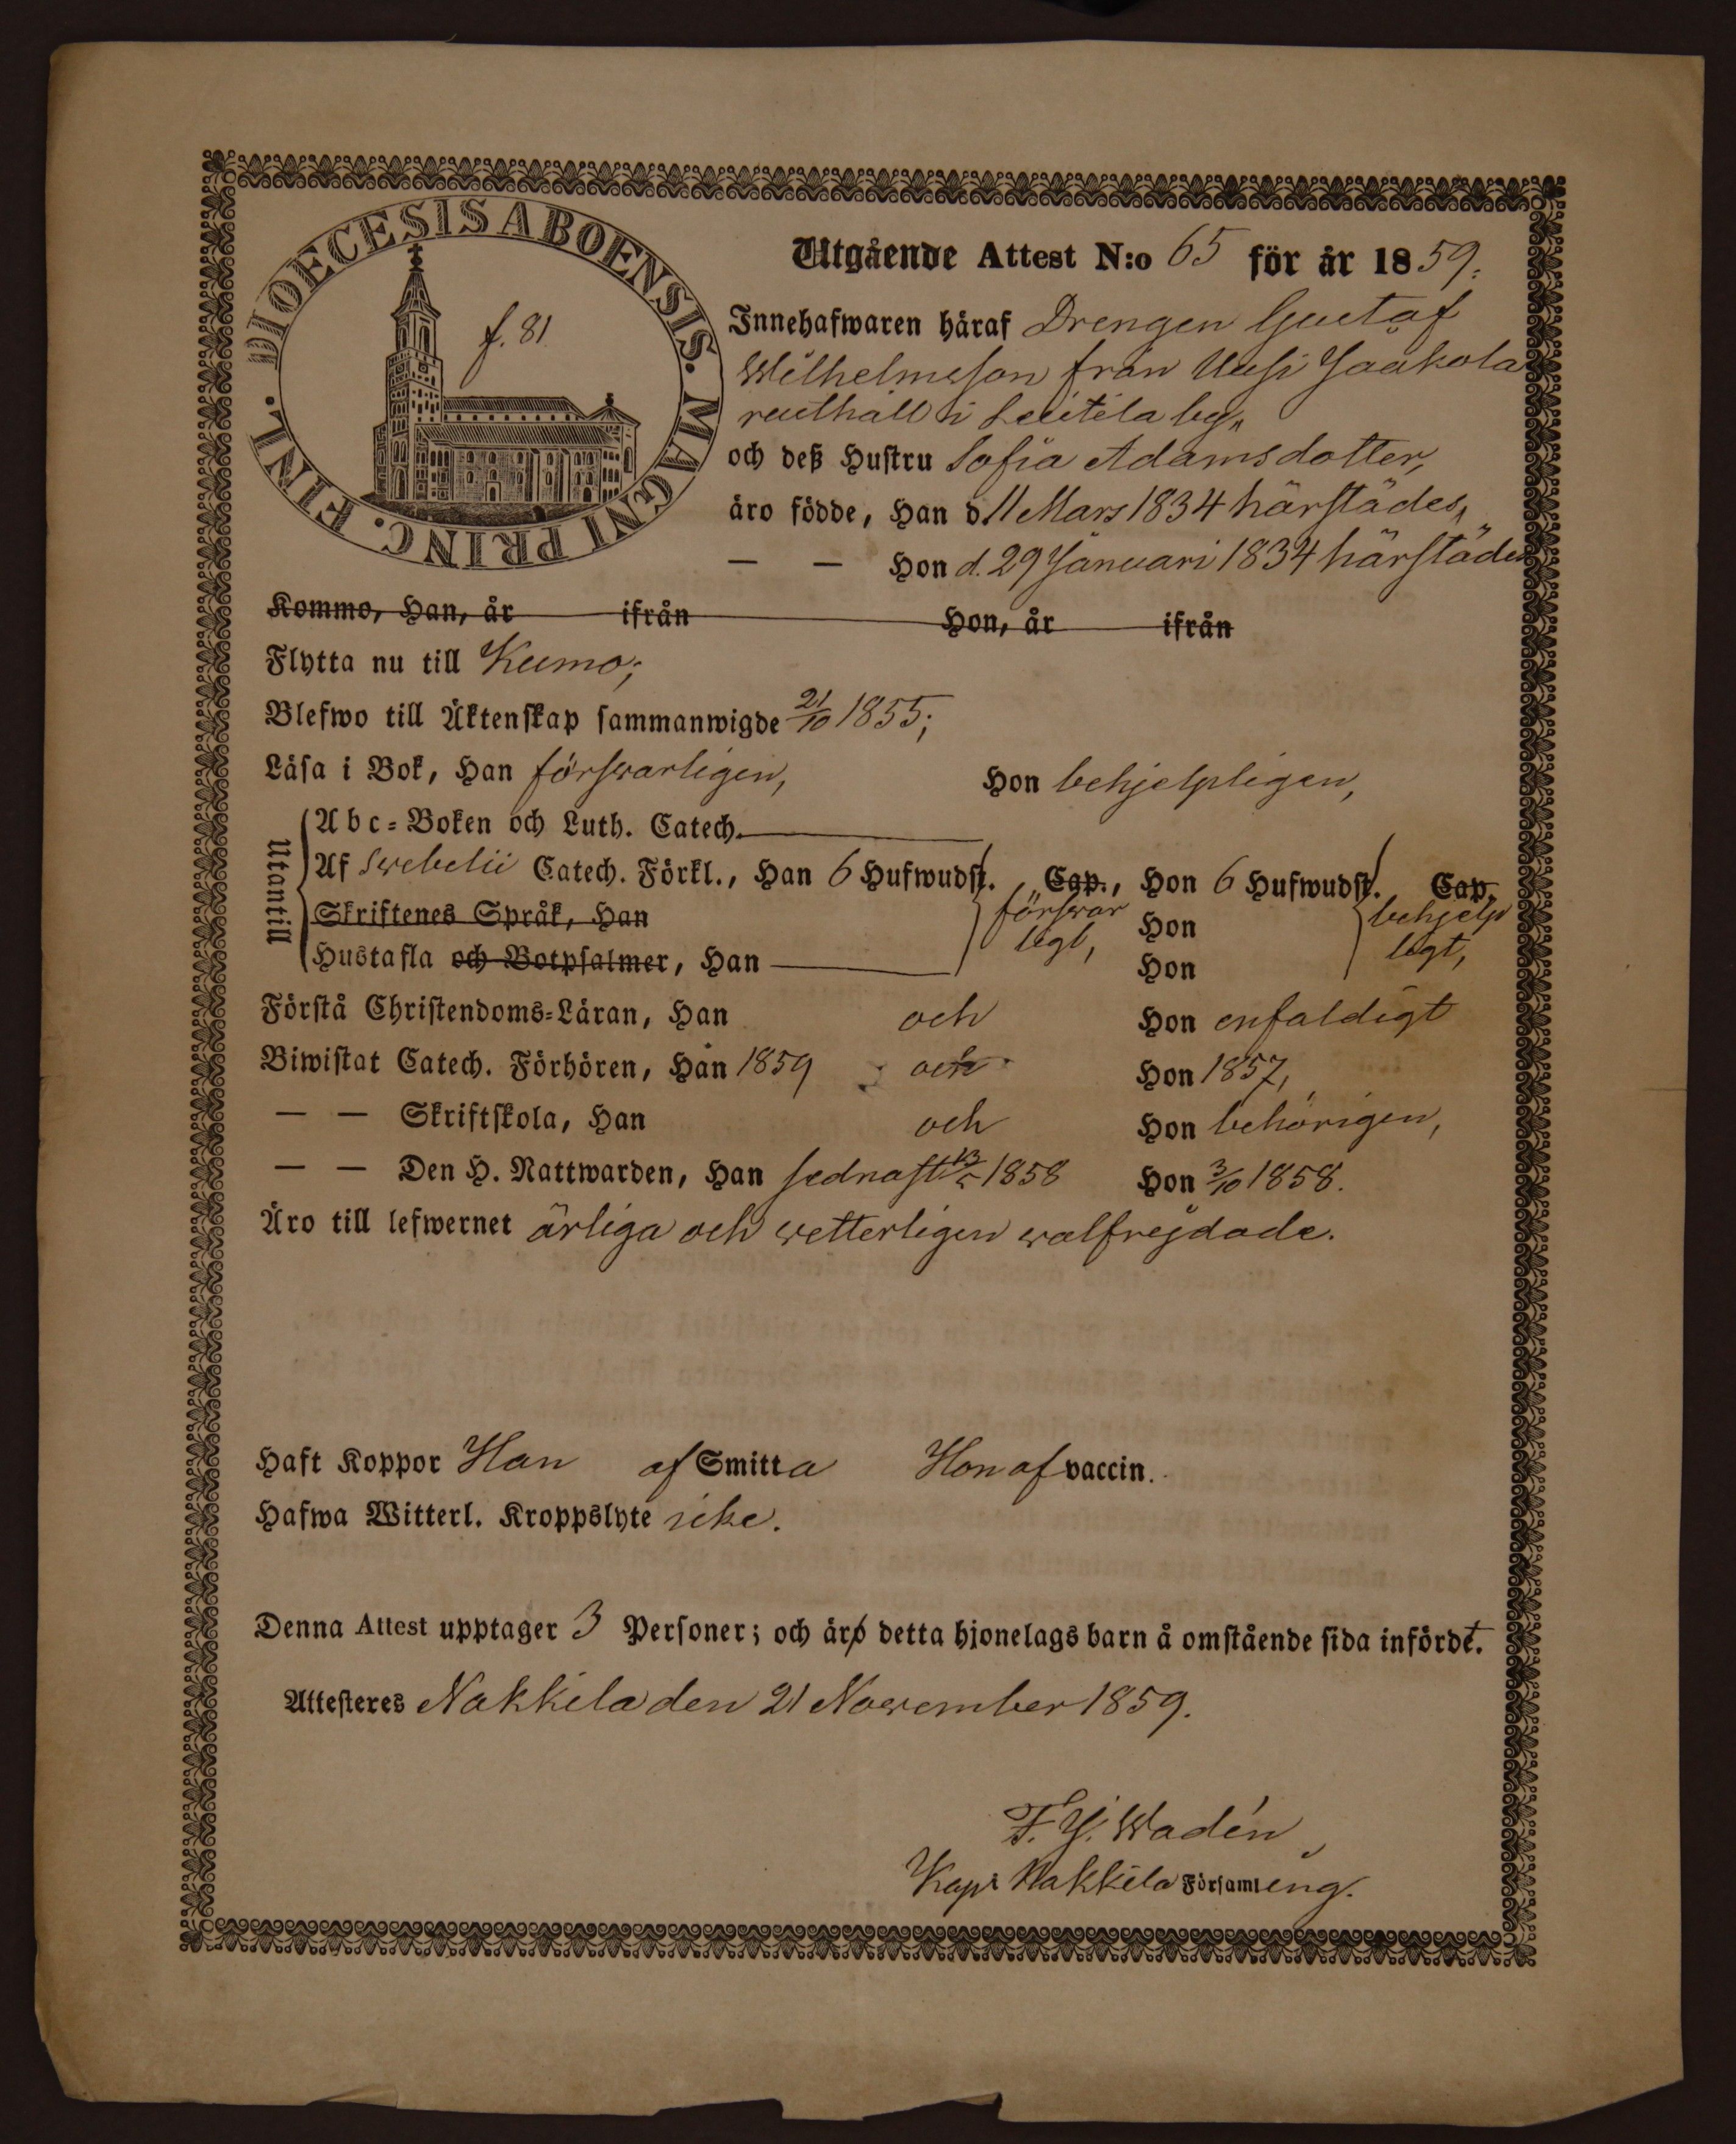 DIOECESIS ABOENSIS. MAGNI PRINC. FINL.
f. 81
Utgående Attest N:o 65 för år 1859.
Innehafwaren häraf Drengen Gustaf
Wilhelmsson från Uusi Jaakola
rusthåll i Leistila by,
och deß Hustru Sofia Adamsdotter,
äro födde, Han d. 11 Mars 1834 härstädes,
— — Hon d. 29 Januari 1834 härstädes
Kommo, Han, år ifrån Hon, år ifrån
Flytta nu till Kumo;
Blefwo till Äktenskap sammanwigde 21/10 1855;
Läsa i Bok, Han förswarligen, Hon behjelpligen,
Utantill
Abc-Boken och Luth. Catech.
Af Swebelii Catech. Förkl., Han 6 Hufwudst. Cap., Hon 6 Hufwudst. Cap.
Skriftenes Språk, Han förswar Hon behjelp
Hustafla och Botpsalmer, Han ligt, Hon ligt,
Förstå Christendoms-Läran, Han och Hon enfaldigt
Biwistat Catech. Förhören, Han 1859 och Hon 1857,
— — Skriftskola, Han och Hon behörigen,
— — Den H. Nattwarden, Han sednast 1858 Hon 3/10 1858.
Äro till lefwernet ärliga och wetterligen wälfrejdade.
Haft Koppor Han af Smitta Hon af vaccin.
Hafwa Witterl. Kroppslyte icke.
Denna Attest upptager 3 Personer; och äro detta hjonelags barn å omstående sida infördt.
Attesteres Nakkila den 21 November 1859.
F. J. Wadén
Kapl. i Nakkila Församling.